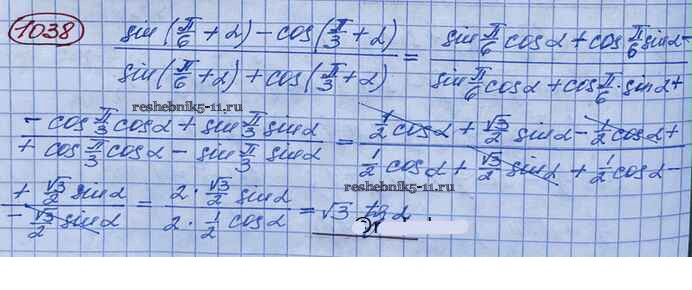 1038 sin(π/6 + α) − cos(π/3 + α) / sin(π/6 + α) + cos(π/3 + α) = sin π/6 cos α + cos π/6 sin α − / sin π/6 cos α + cos π/6 · sin α +
− cos π/3 cos α + sin π/3 sin α / + cos π/3 cos α − sin π/3 sin α = 1/2 cos α + √3/2 sin α − 1/2 cos α + / 1/2 cos α + √3/2 sin α + 1/2 cos α −
reshebnik5-11.ru
+ √3/2 sin α / − √3/2 sin α = 2 · √3/2 sin α / 2 · 1/2 cos α = √3 tg α
reshebnik5-11.ru